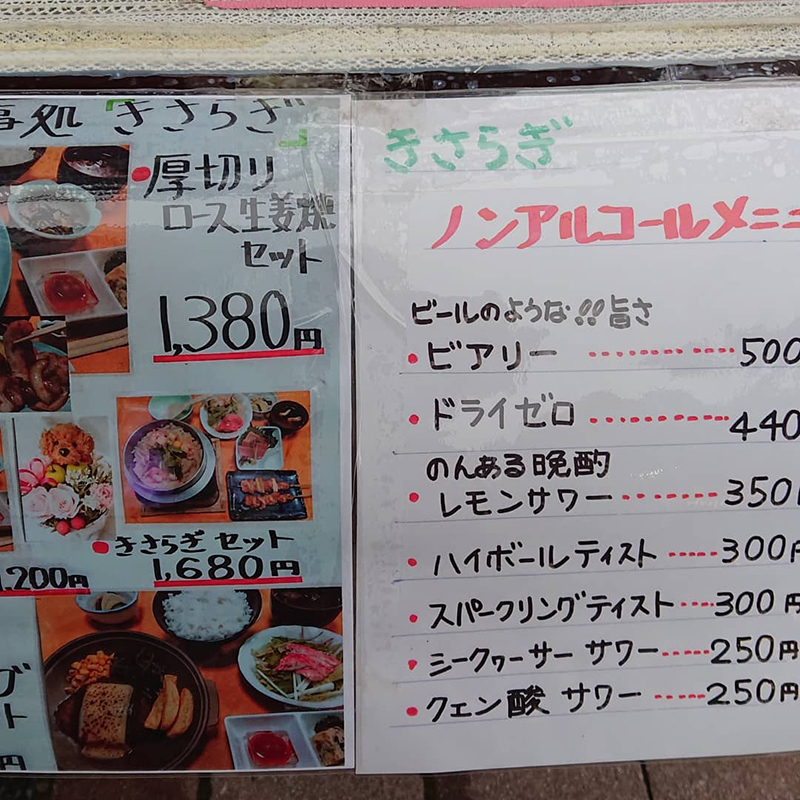 処「きさらぎ」
・厚切り
ロース生姜焼
セット
1,380円
・きさらぎセット
1,680円
,200円
グ
ト
円
きさらぎ
ノンアルコールメニュ
ビールのような!!旨さ
・ビアリー ………… 500
・ドライゼロ ………… 440
のんある晩酌
・レモンサワー ……… 350
・ハイボールティスト …… 300円
・スパークリングティスト … 300円
・シークヮーサーサワー …… 250円
・クェン酸サワー …… 250円